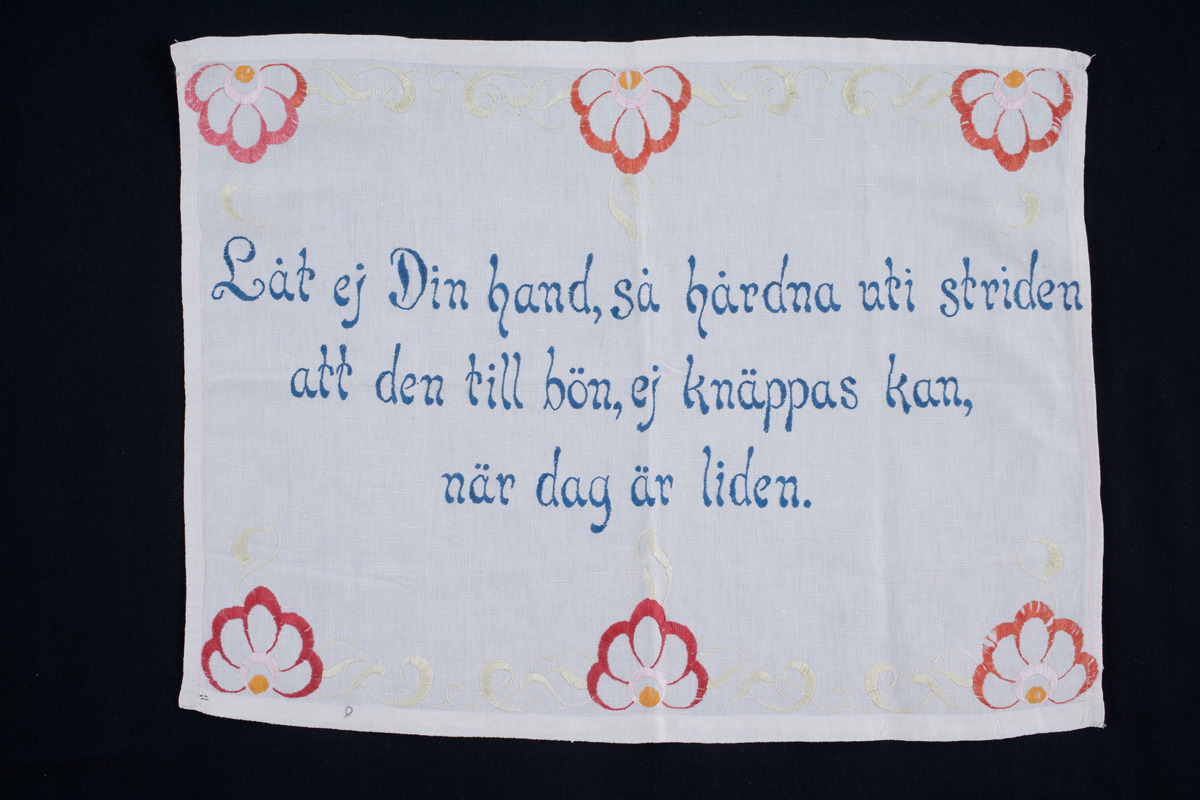 Låt ej Din hand, så hårdna uti striden
att den till bön, ej knäppas kan,
när dag är liden.